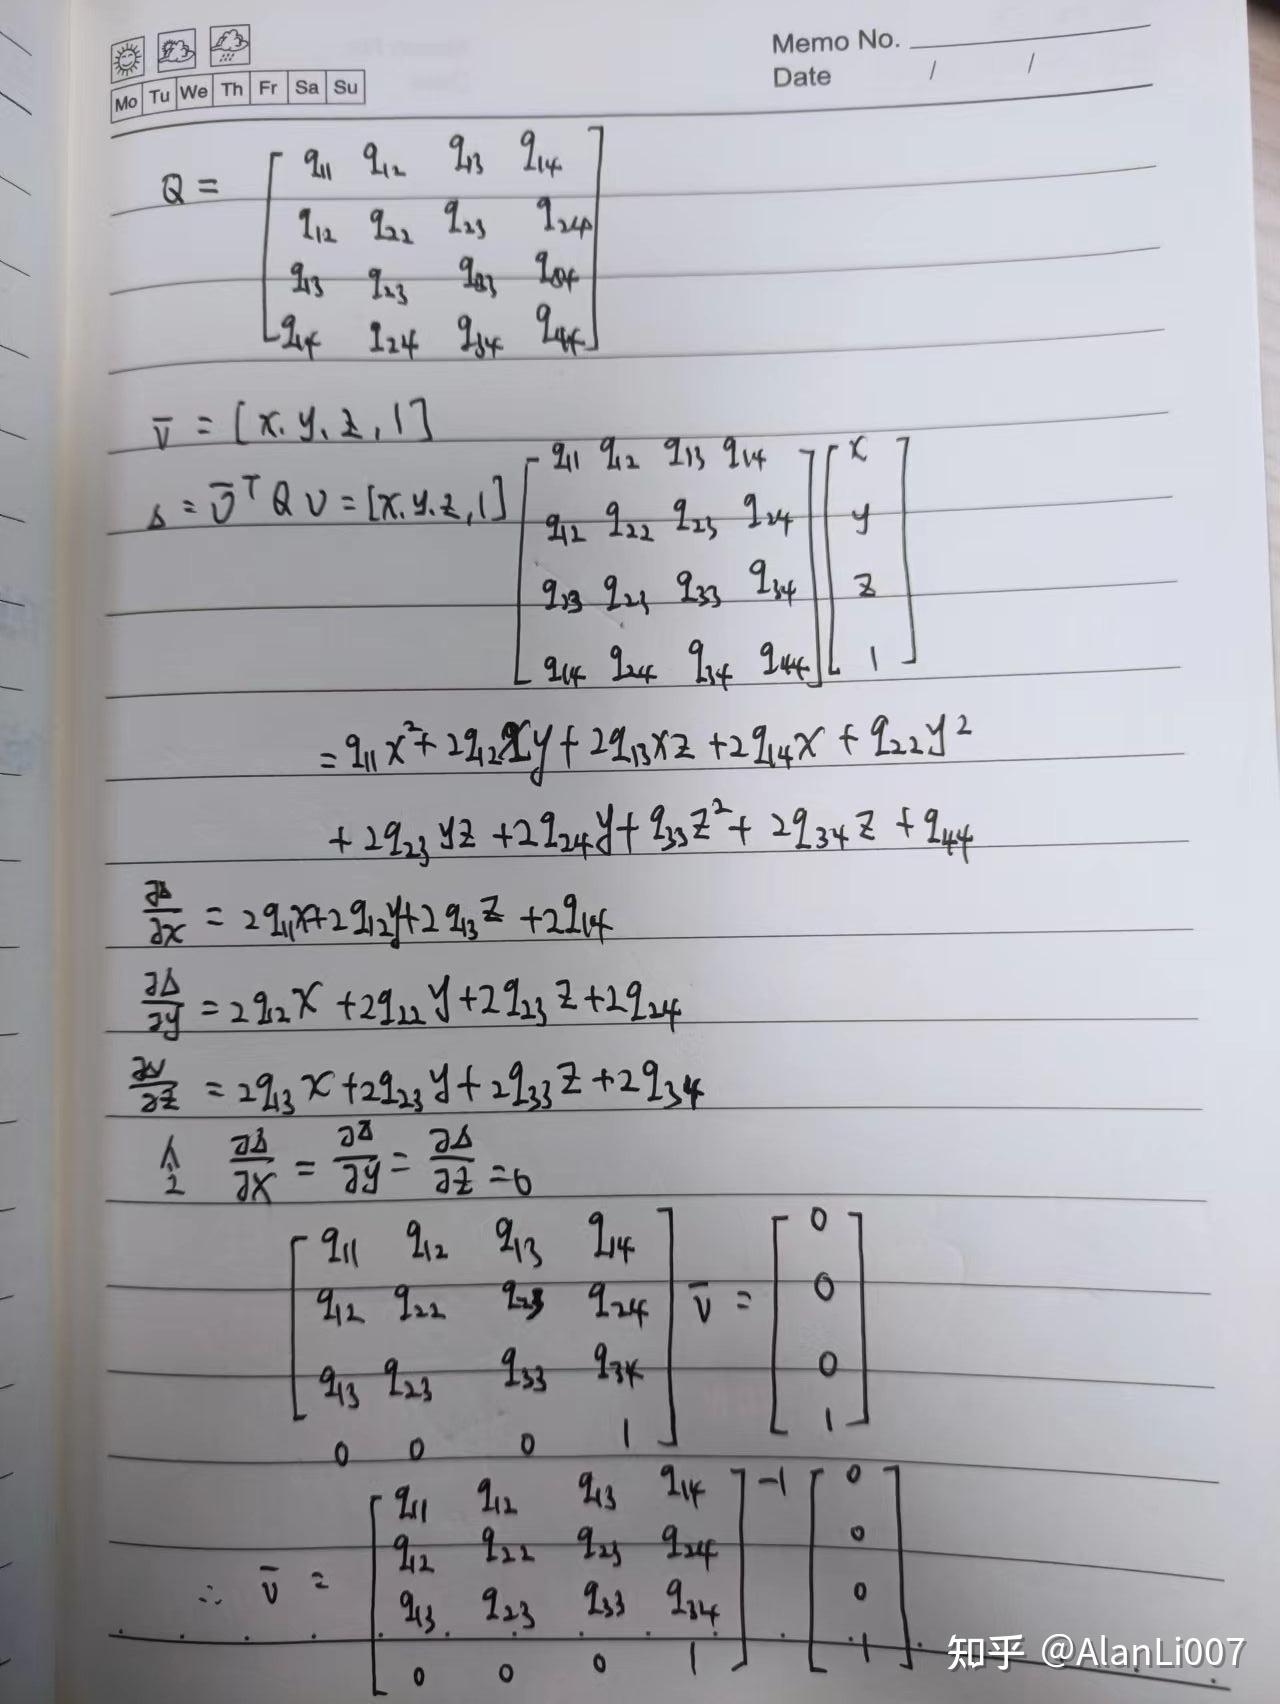 Memo No.
Date / /
Mo Tu We Th Fr Sa Su
Q = [ q11 q12 q13 q14
q12 q22 q23 q24
q13 q23 q33 q34
q14 q24 q34 q44 ]
v̄ = [x. y. z, 1]
Δ = v̄ᵀ Q v = [x. y. z, 1] [ q11 q12 q13 q14 ] [ x
q12 q22 q23 q24 y
q13 q23 q33 q34 z
q14 q24 q34 q44 1 ]
= q11 x² + 2q12 xy + 2q13 xz + 2q14 x + q22 y²
+ 2q23 yz + 2q24 y + q33 z² + 2q34 z + q44
∂Δ/∂x = 2q11 x + 2q12 y + 2q13 z + 2q14
∂Δ/∂y = 2q12 x + 2q22 y + 2q23 z + 2q24
∂Δ/∂z = 2q13 x + 2q23 y + 2q33 z + 2q34
令 ∂Δ/∂x = ∂Δ/∂y = ∂Δ/∂z = 0
[ q11 q12 q13 q14 ] v̄ = [ 0
q12 q22 q23 q24 0
q13 q23 q33 q34 0
0 0 0 1 1 ]
∴ v̄ = [ q11 q12 q13 q14 ]⁻¹ [ 0
q12 q22 q23 q24 0
q13 q23 q33 q34 0
0 0 0 1 1 ]
知乎 @AlanLi007